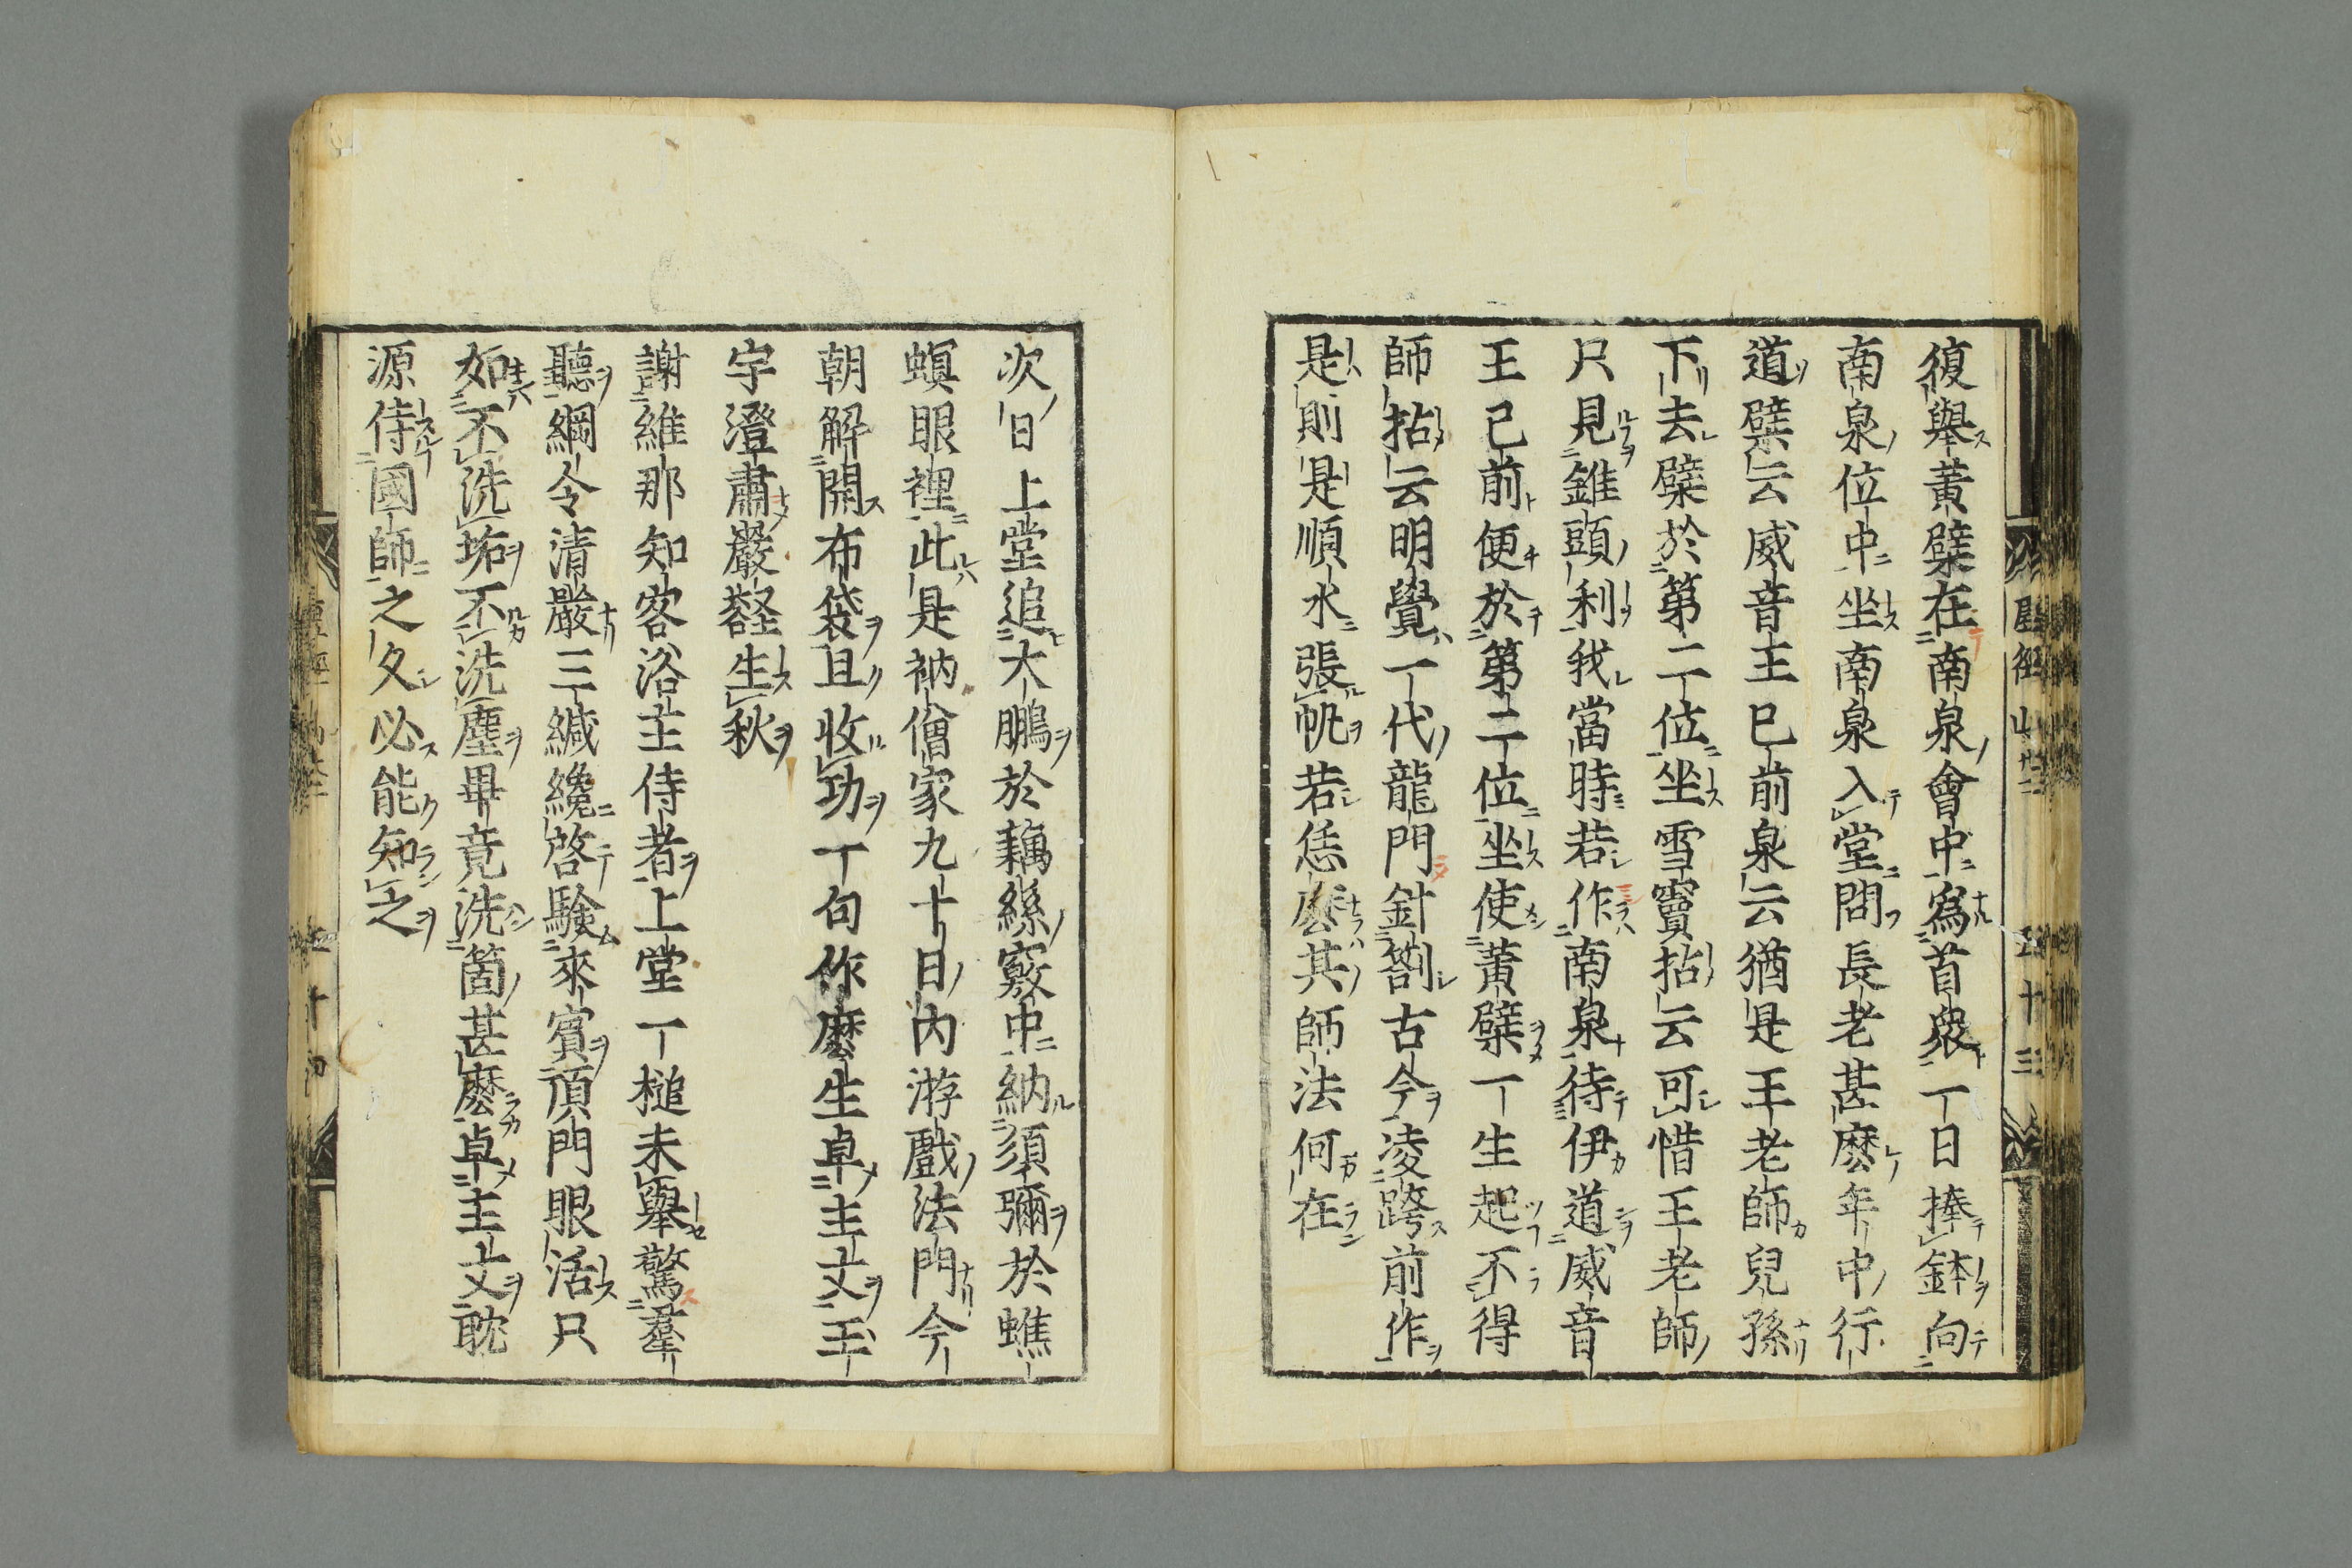 復舉黃檗在南泉會中爲首衆一日捧鉢向
南泉位中坐南泉入堂問長老甚麽年中行
道檗云威音王已前泉云猶是王老師兒孫
下去檗於第二位坐雪竇拈云可惜王老師
只見錐頭利我當時若作南泉待伊道威音
王已前便於第二位坐使黃檗一生起不得
師拈云明覺一代龍門針劄古今凌跨前作
是則是順水張帆若恁麽其師法何在
五十三
次日上堂追大鵬於藕絲竅中納須彌於蟭
螟眼裡此是衲僧家九十日內游戲法門今
朝解開布袋且收功一句作麽生卓主丈玉
宇澄肅嚴壑生秋
謝維那知客浴主侍者上堂一槌未舉驚羣
聽綱令清嚴三緘纔啓驗來賓頂門眼活只
如不洗垢不洗塵畢竟洗箇甚麽卓主丈耽
源侍國師之久必能知之